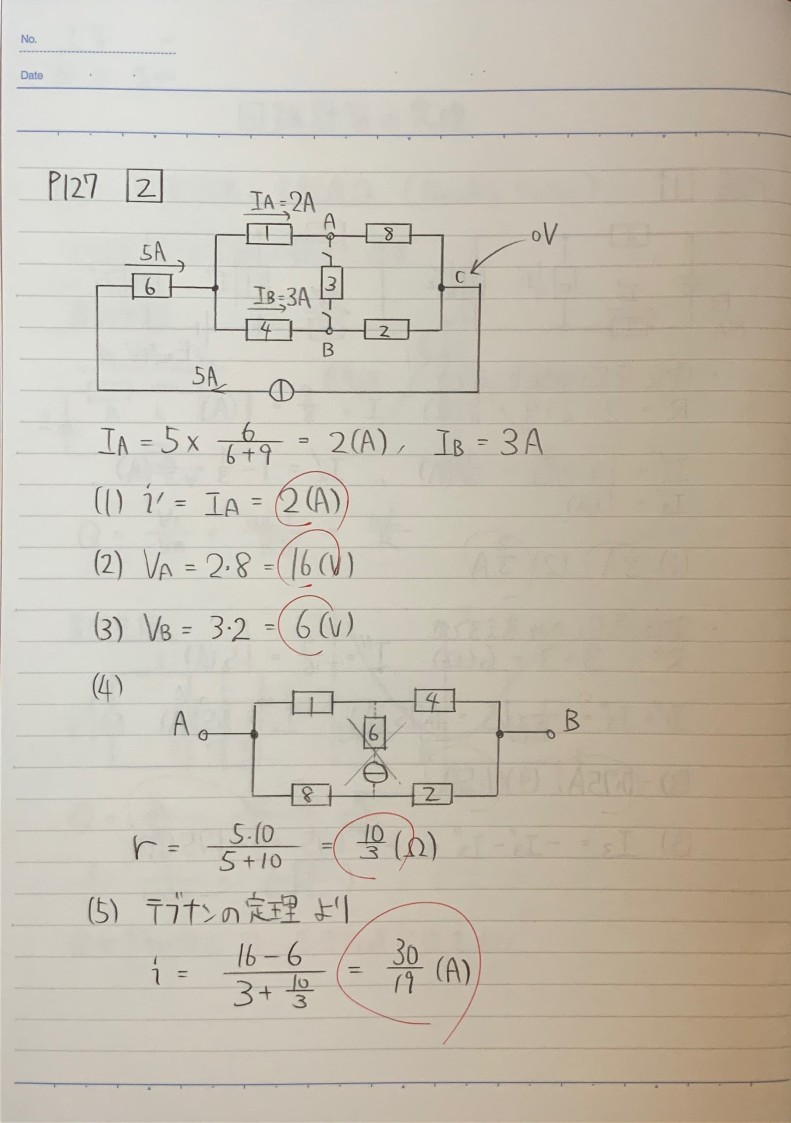 No.
Date
P127 2
IA=2A
A
1
8
0V
5A
6
3
C
IB=3A
4
2
B
5A
IA = 5 × 6/(6+9) = 2(A), IB = 3A
(1) i' = IA = 2(A)
(2) VA = 2·8 = 16(V)
(3) VB = 3·2 = 6(V)
(4)
1
4
A
6
B
8
2
r = 5·10/(5+10) = 10/3 (Ω)
(5) テブナンの定理より
i = (16-6)/(3+10/3) = 30/19 (A)